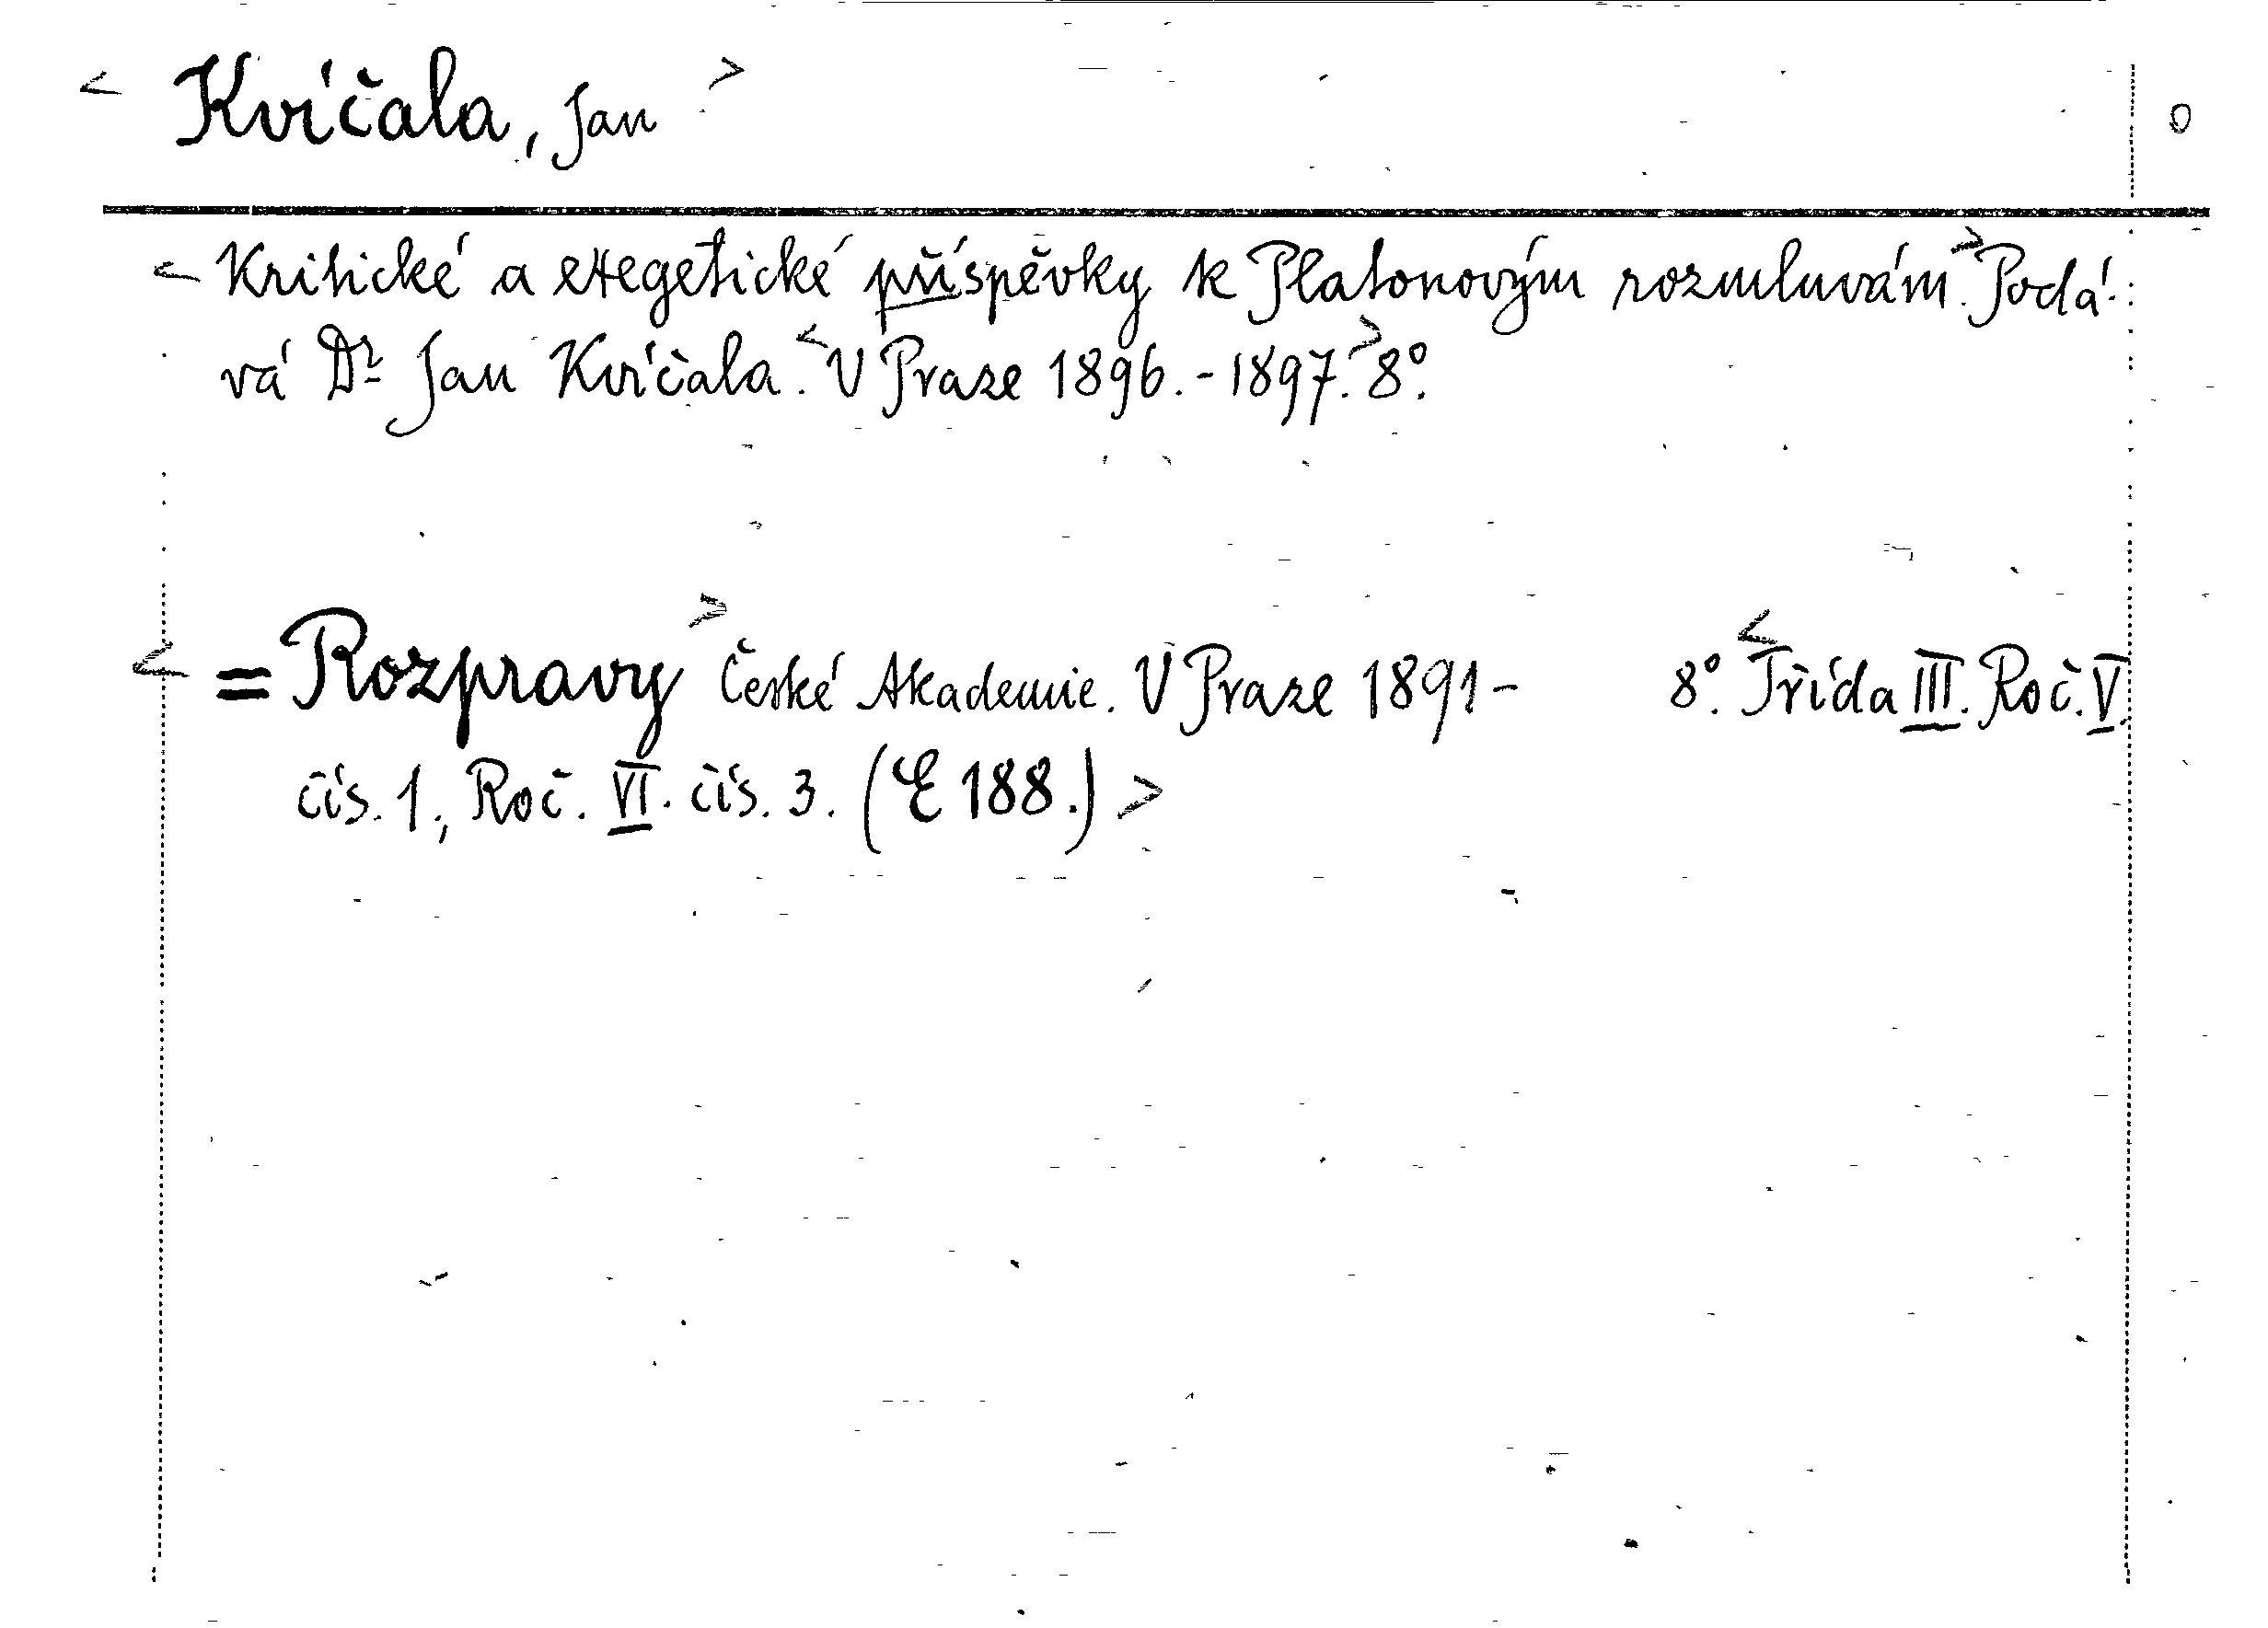 < Kvíčala, Jan > 0
< Kritické a exegetické příspěvky k Platonovým rozmluvám.> Podá-
vá Dr. Jan Kvíčala. <V Praze 1896.-1897.> 8º.
< = Rozpravy > České Akademie. V Praze 1891- 8º. < Třída III. Roč. V.
čís. 1., Roč. VI. čís. 3. (E 188.) >